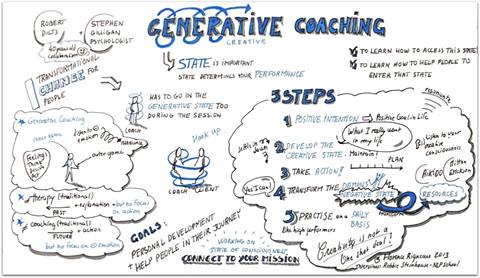 ROBERT DILTS
STEPHEN GILLIGAN
PSYCHOLOGIST
GENERATIVE COACHING
CREATIVE
STATE IS IMPORTANT
STATE DETERMINES YOUR PERFORMANCE
TO LEARN HOW TO ACCESS THIS STATE
TO LEARN HOW TO HELP PEOPLE TO
ENTER THAT STATE
TRANSFORMATIONAL
CHANGE FOR
PEOPLE
HAS TO GO IN THE
GENERATIVE STATE TOO
DURING THE SESSION
COACH
Generative Coaching
inner game
listen to
emotion
resonance
outer game
Feelings
Think
≠ therapy (traditional)
+ explanation + but no focus
on action
PAST
≠ coaching (traditional)
+ action
FUTURE
but no focus on emotion
Hook up
COACH
CLIENT
GOALS:
PERSONAL DEVELOPMENT
+ HELP PEOPLE IN THEIR JOURNEY
WORKING ON
STATE OF CONSCIOUSNESS
CONNECT TO YOUR MISSION
5 STEPS
resonate
1 POSITIVE INTENTION → Positive Goal in Life
What I really want
in my life
2 DEVELOP THE
CREATIVE STATE. Maintain!
3 TAKE ACTION!
PLAN
4 TRANSFORM THE DEMONS
NEGATIVE STATE
RESOURCES
Yes I can!
5 PRACTISE on a DAILY
BASIS
like high performers
Listen to your
creative consciousness
AIKIDO
Milton
Erickson
Creativity is not a
One shot deal!
Florence Rigneaux 2013
Interview Robbie Steinhouse - NLP School